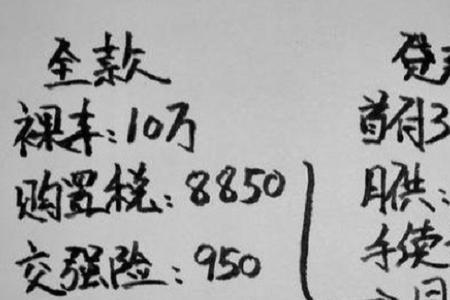 全款
裸车：10万
购置税：8850
交强险：950
首付3
月供：
手续